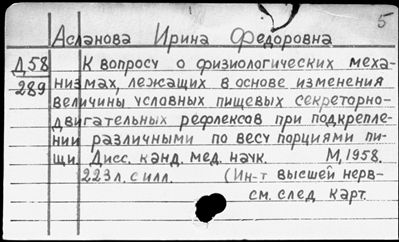 5
Асланова Ирина Федоровна
Д 58
289
К вопросу о физиологических меха-
низмах, лежащих в основе изменения
величины условных пищевых секреторно-
двигательных рефлексов при подкрепле-
нии различными по весу порциями пи-
щи. Дисс. канд. мед. наук. М, 1958.
223 л. с илл. (Ин-т высшей нерв-
см. след карт.